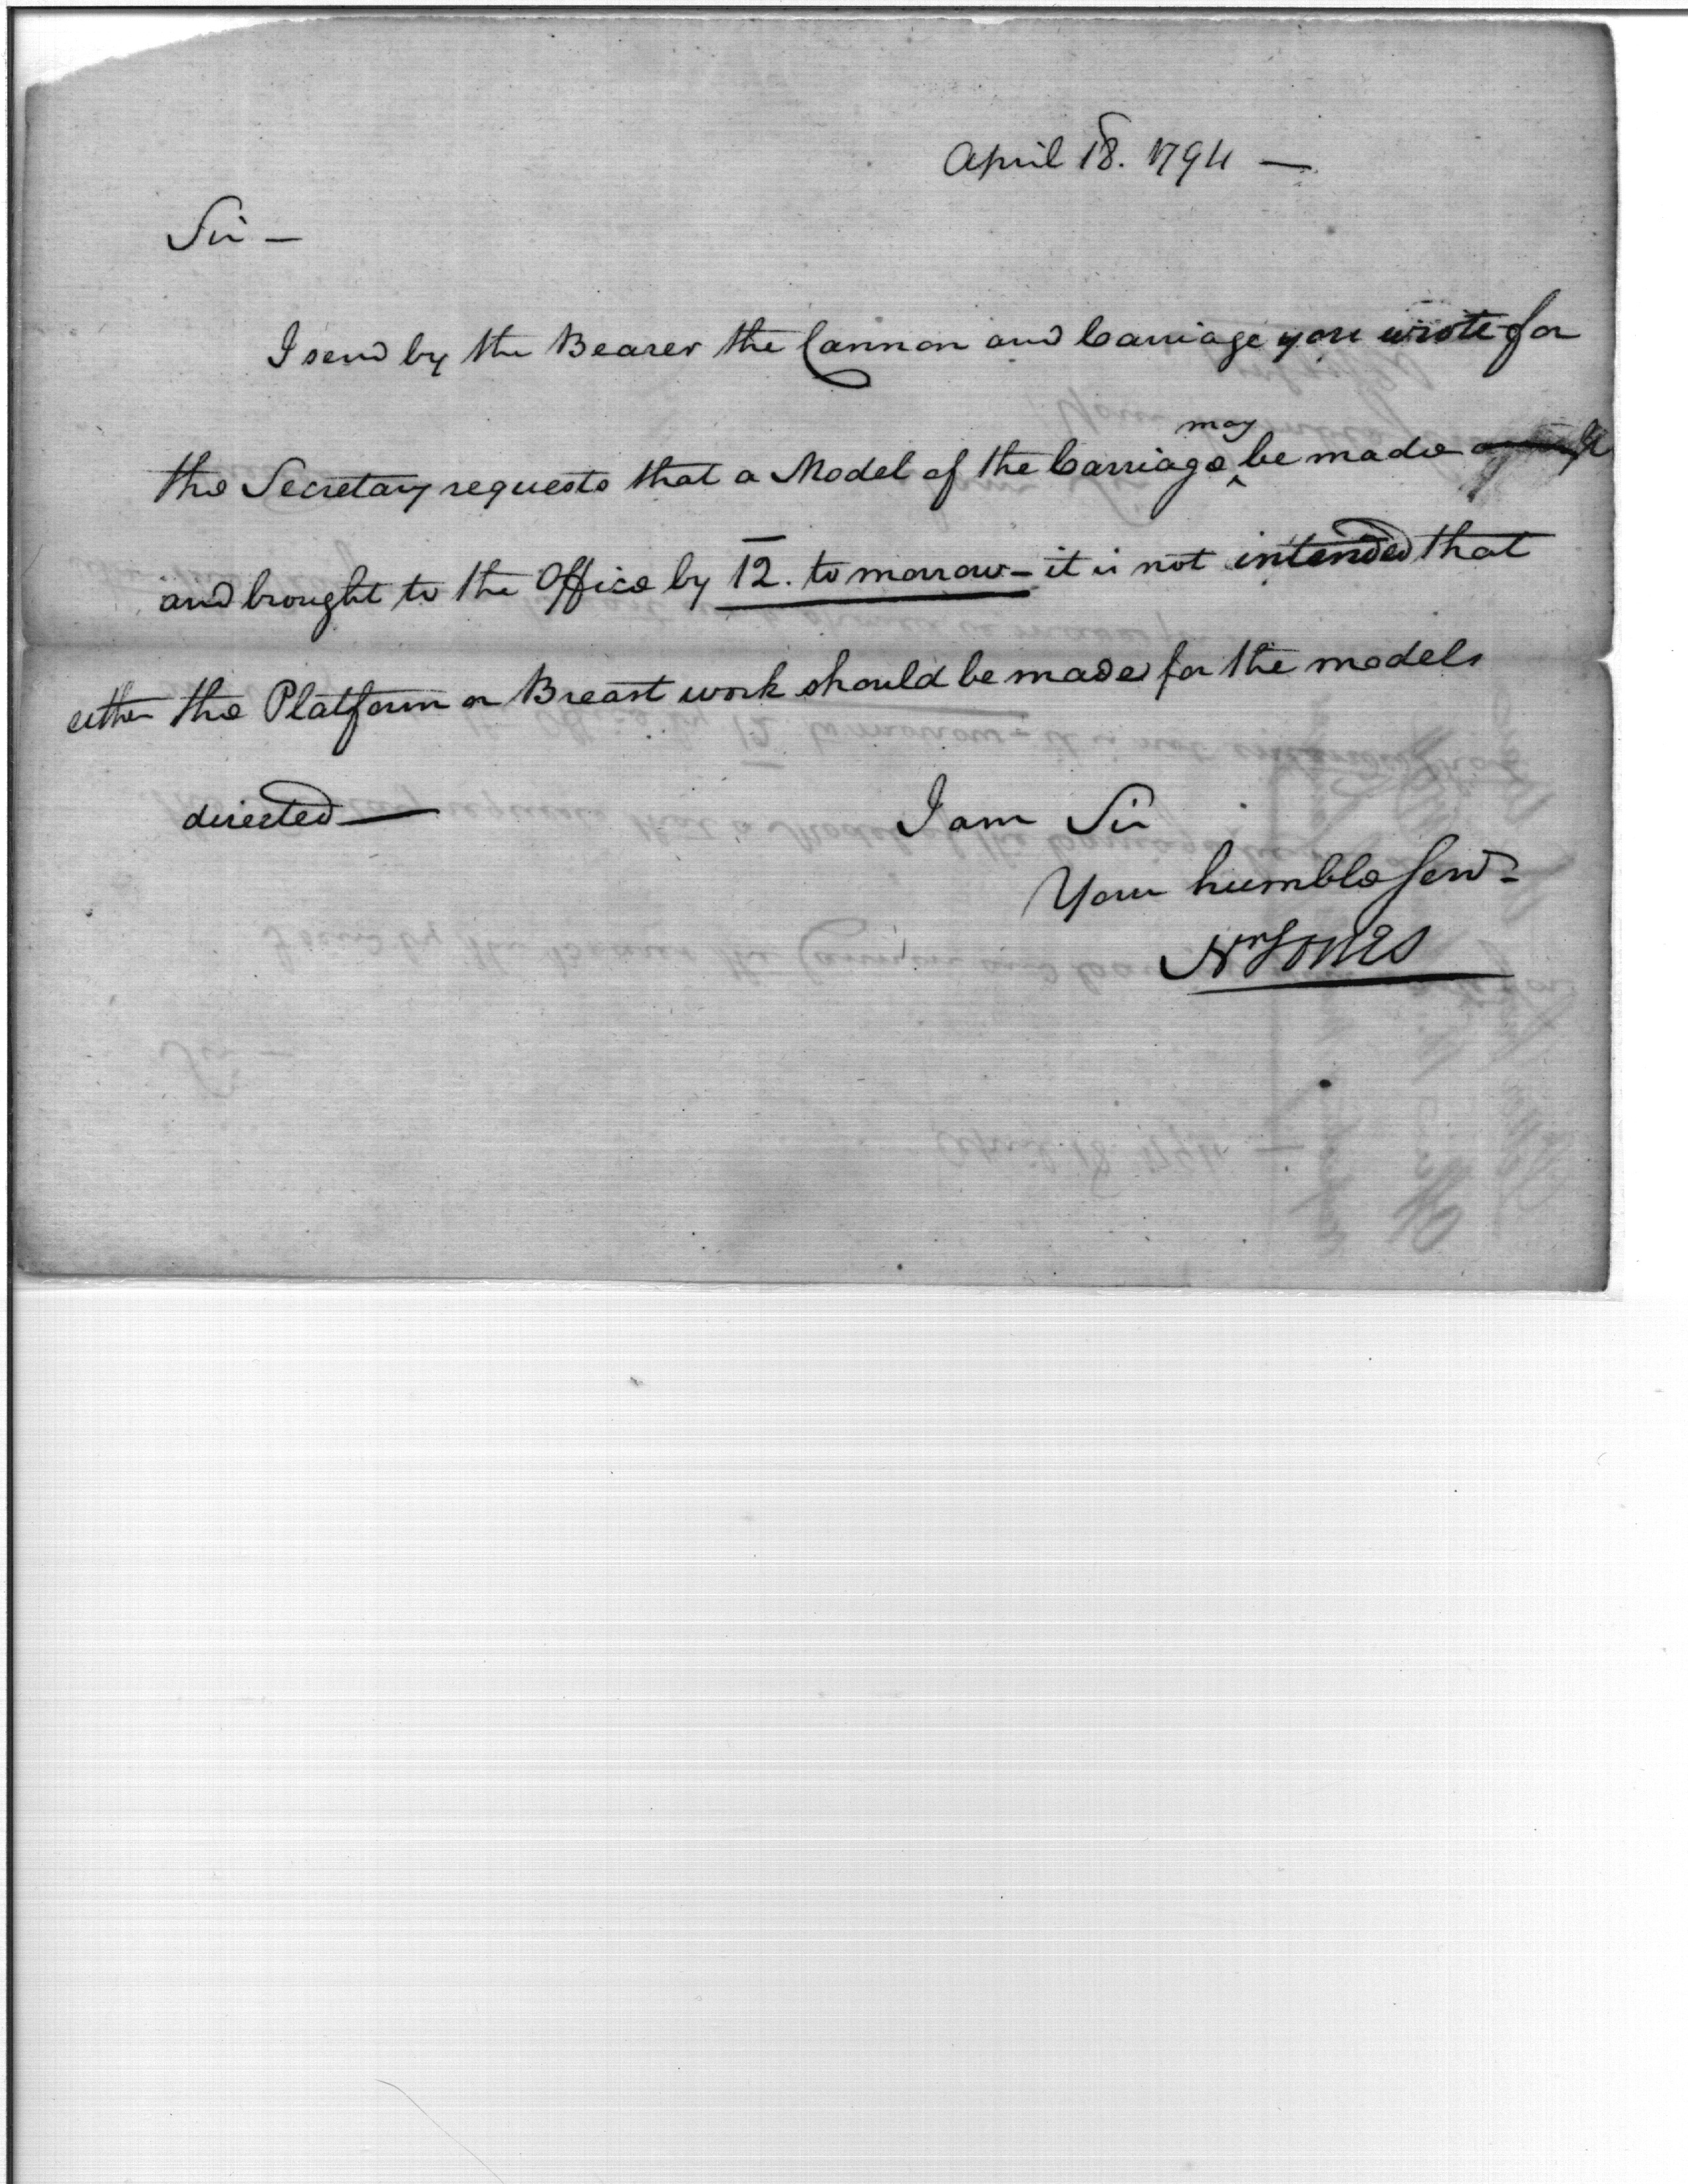 April 18. 1794 —
Sir —
I send by the Bearer the Cannon and Carriage you wrote for
the Secretary requests that a Model of the Carriage may be made
and brought to the Office by 12. to morrow – it is not intended that
either the Platform or Breast work should be made for the models
directed —
I am Sir
Your humble Servt
Jones